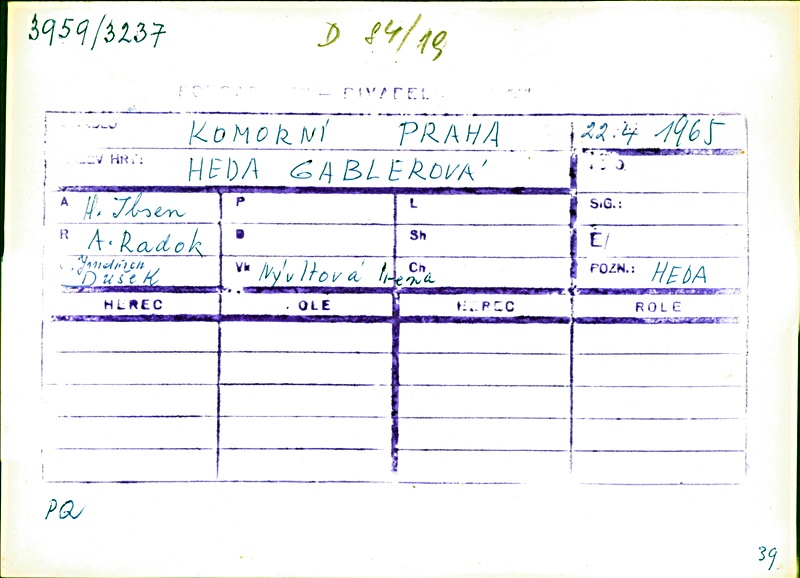 3959/3237
D 84/19
KOMORNÍ PRAHA 22.4 1965
HEDA GABLEROVÁ
A H. Ibsen P L SIG.:
R A. Radok Sh
Jindřich Dušek Vk Nývltová Irena Ch POZN.: HEDA
HEREC HEREC ROLE
PQ
39